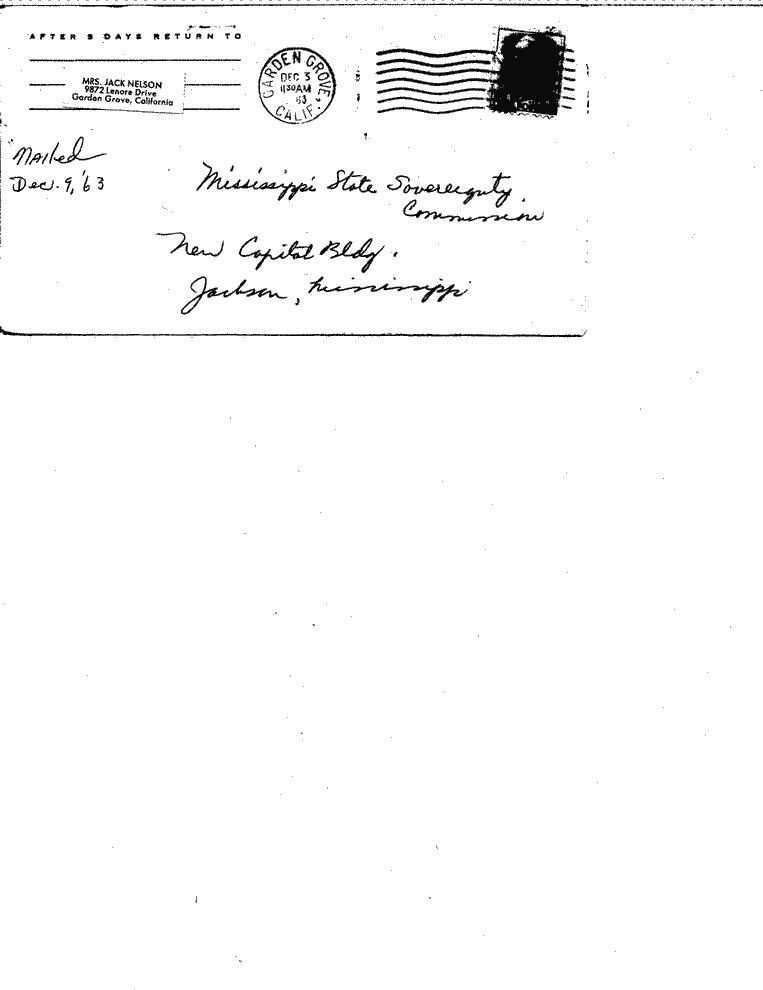 AFTER 5 DAYS RETURN TO
MRS. JACK NELSON
9872 Lenore Drive
Garden Grove, California
GARDEN GROVE,
DEC 3
11 30 AM
63
CALIF.
Mailed
Dec. 9, '63
Mississippi State Sovereignty
Commission
New Capitol Bldg.
Jackson, Mississippi